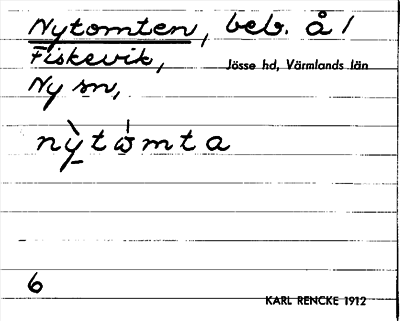 Nytomten, beb. å 1
Fiskevik, Jösse hd, Värmlands län
Ny sn,
nỳ̠tω̍mta
6
KARL RENCKE 1912